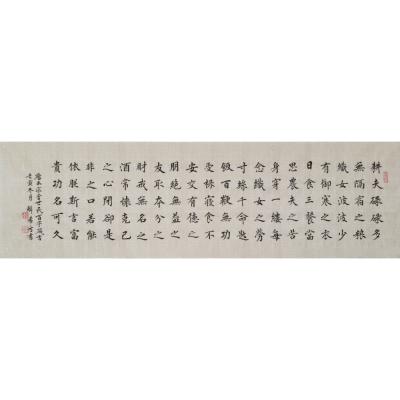 耕夫碌碌多
無隔宿之粮
織女波波少
有御寒之衣
日食三餐當
思農夫之苦
身穿一縷每
念織女之勞
寸絲千命匙
飯百鞭無功
受祿寢食不
安交有德之
朋絕無益之
友取本分之
財戒無名之
酒常懷克己
之心閉卻是
非之口若能
依朕斯言富
貴功名可久
唐太宗李世民百字箴言
壬寅冬月 書